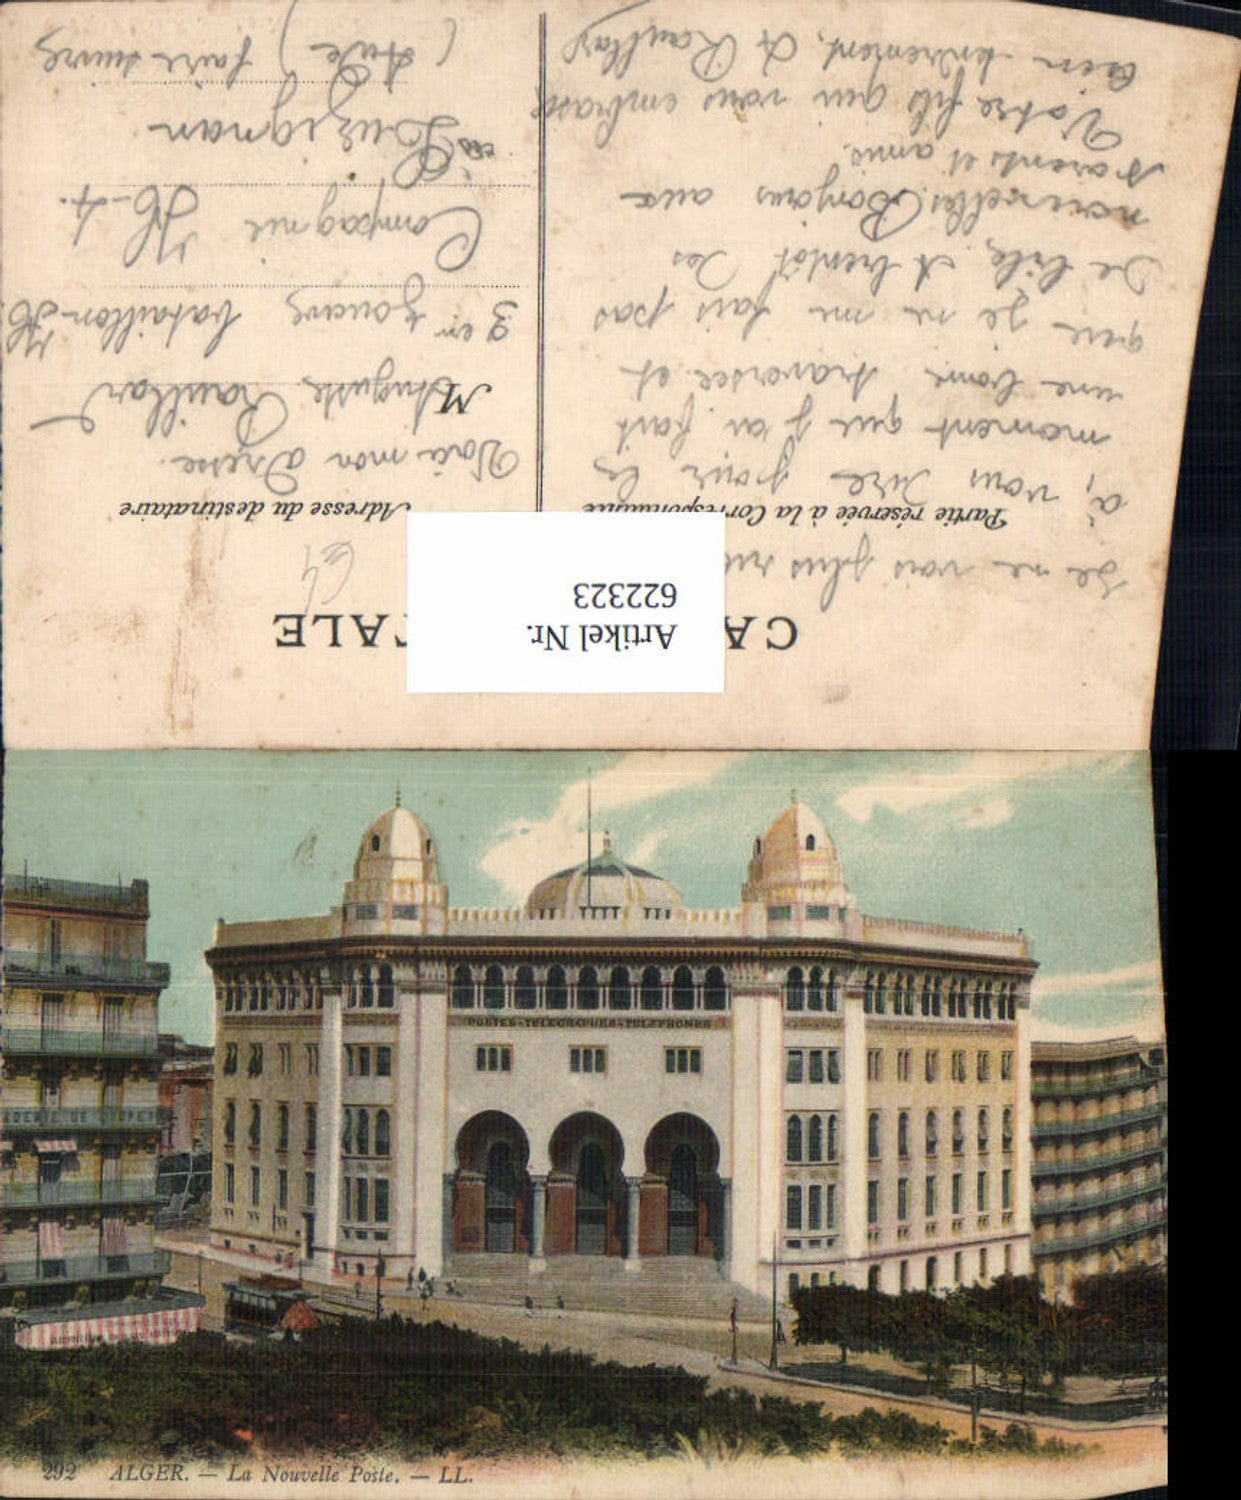 CA TALE
Artikel Nr.
622323
Partie réservée à la Correspondance
Adresse du destinataire
Je ne vais plus
à, vous dire pour le
moment que j'ai fait
une bonne traversée et
que je ne me fais pas
de bile, et bientôt des
nouvelles. Bonjour aux
parents et amis.
Votre fils qui vous embrasse
bien tendrement, A
64
Voilà mon adresse.
M Auguste
3em zouave bataillon
Compagnie
Lezignan
(Aude) faire suivre
POSTES-TELEGRAPHES-TELEPHONES
292 ALGER. — La Nouvelle Poste. — LL.